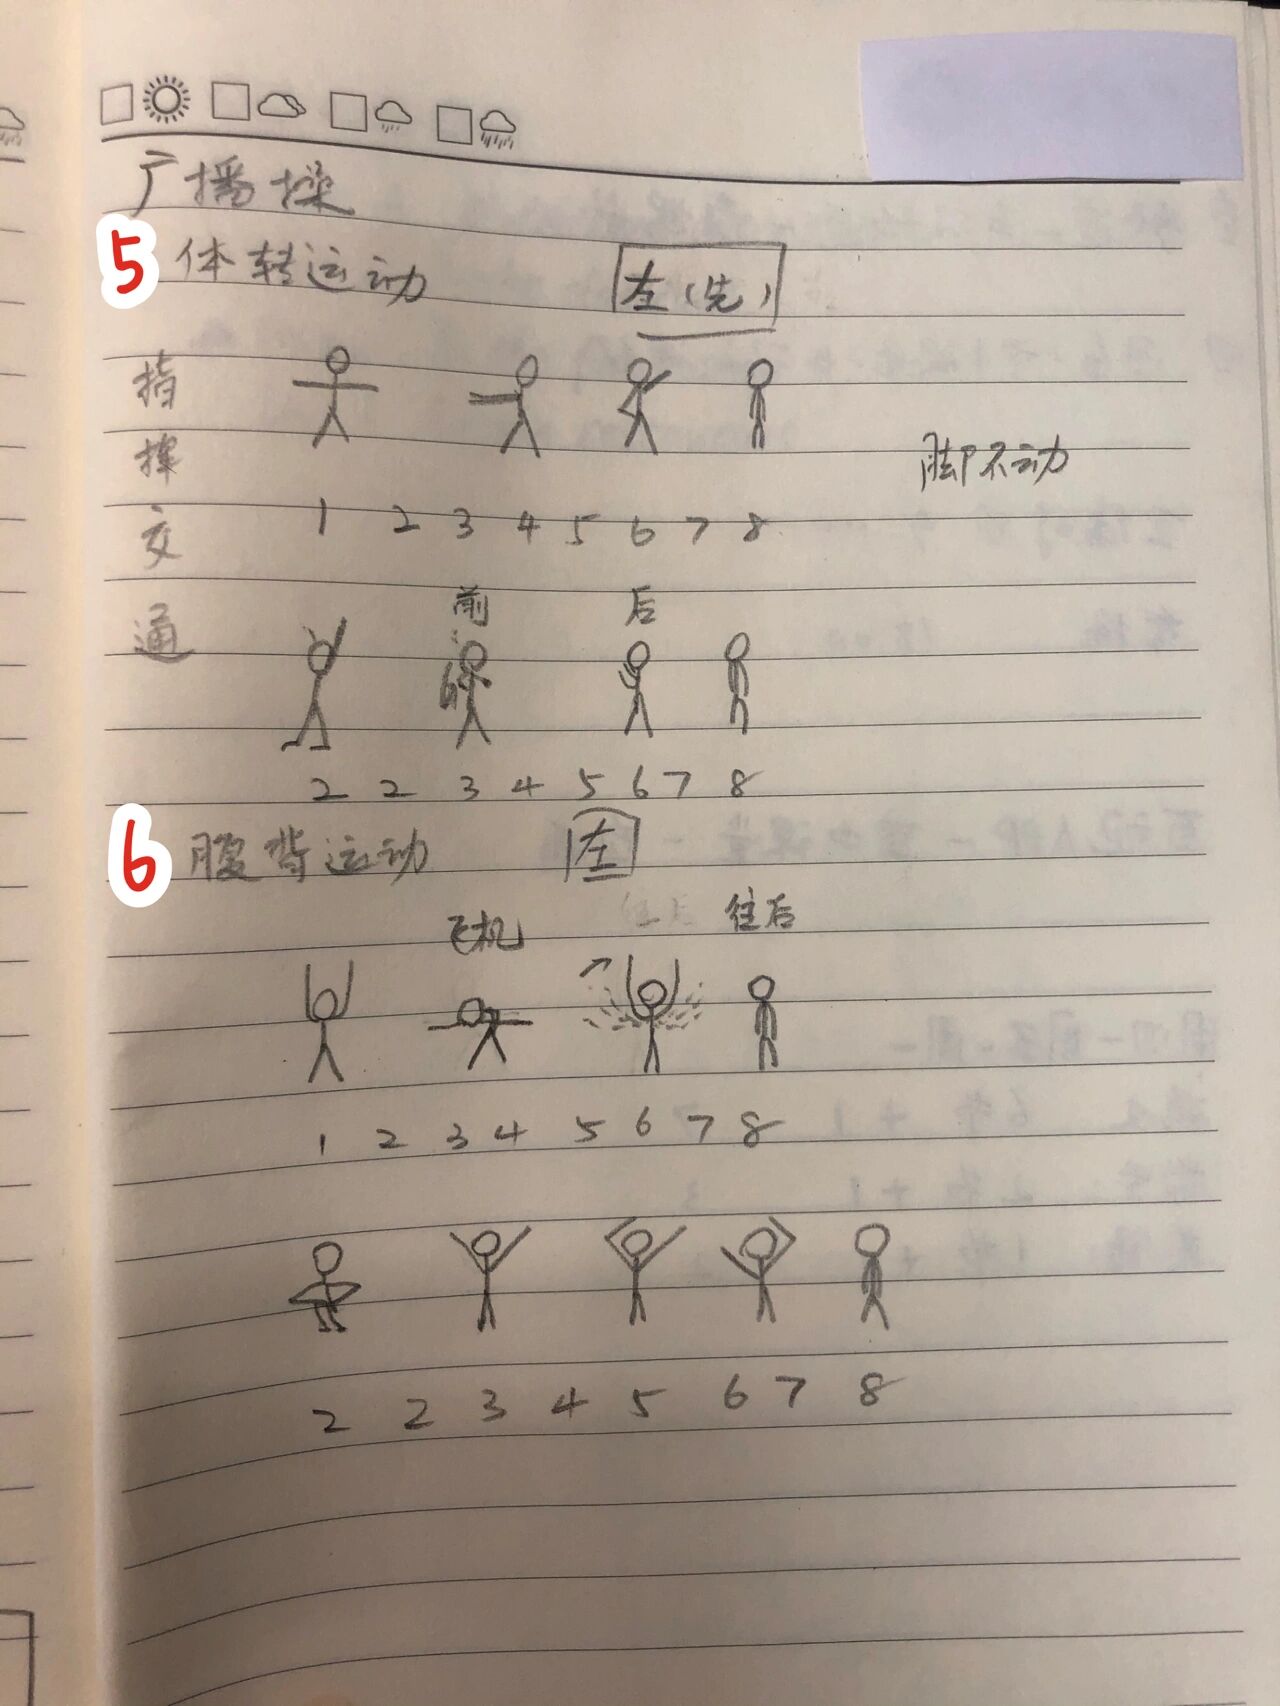 广播操
5 体转运动 左(先)
指挥交通
脚不动
1 2 3 4 5 6 7 8
前 后
2 2 3 4 5 6 7 8
6 腹背运动 左
飞机 往后
1 2 3 4 5 6 7 8
2 2 3 4 5 6 7 8